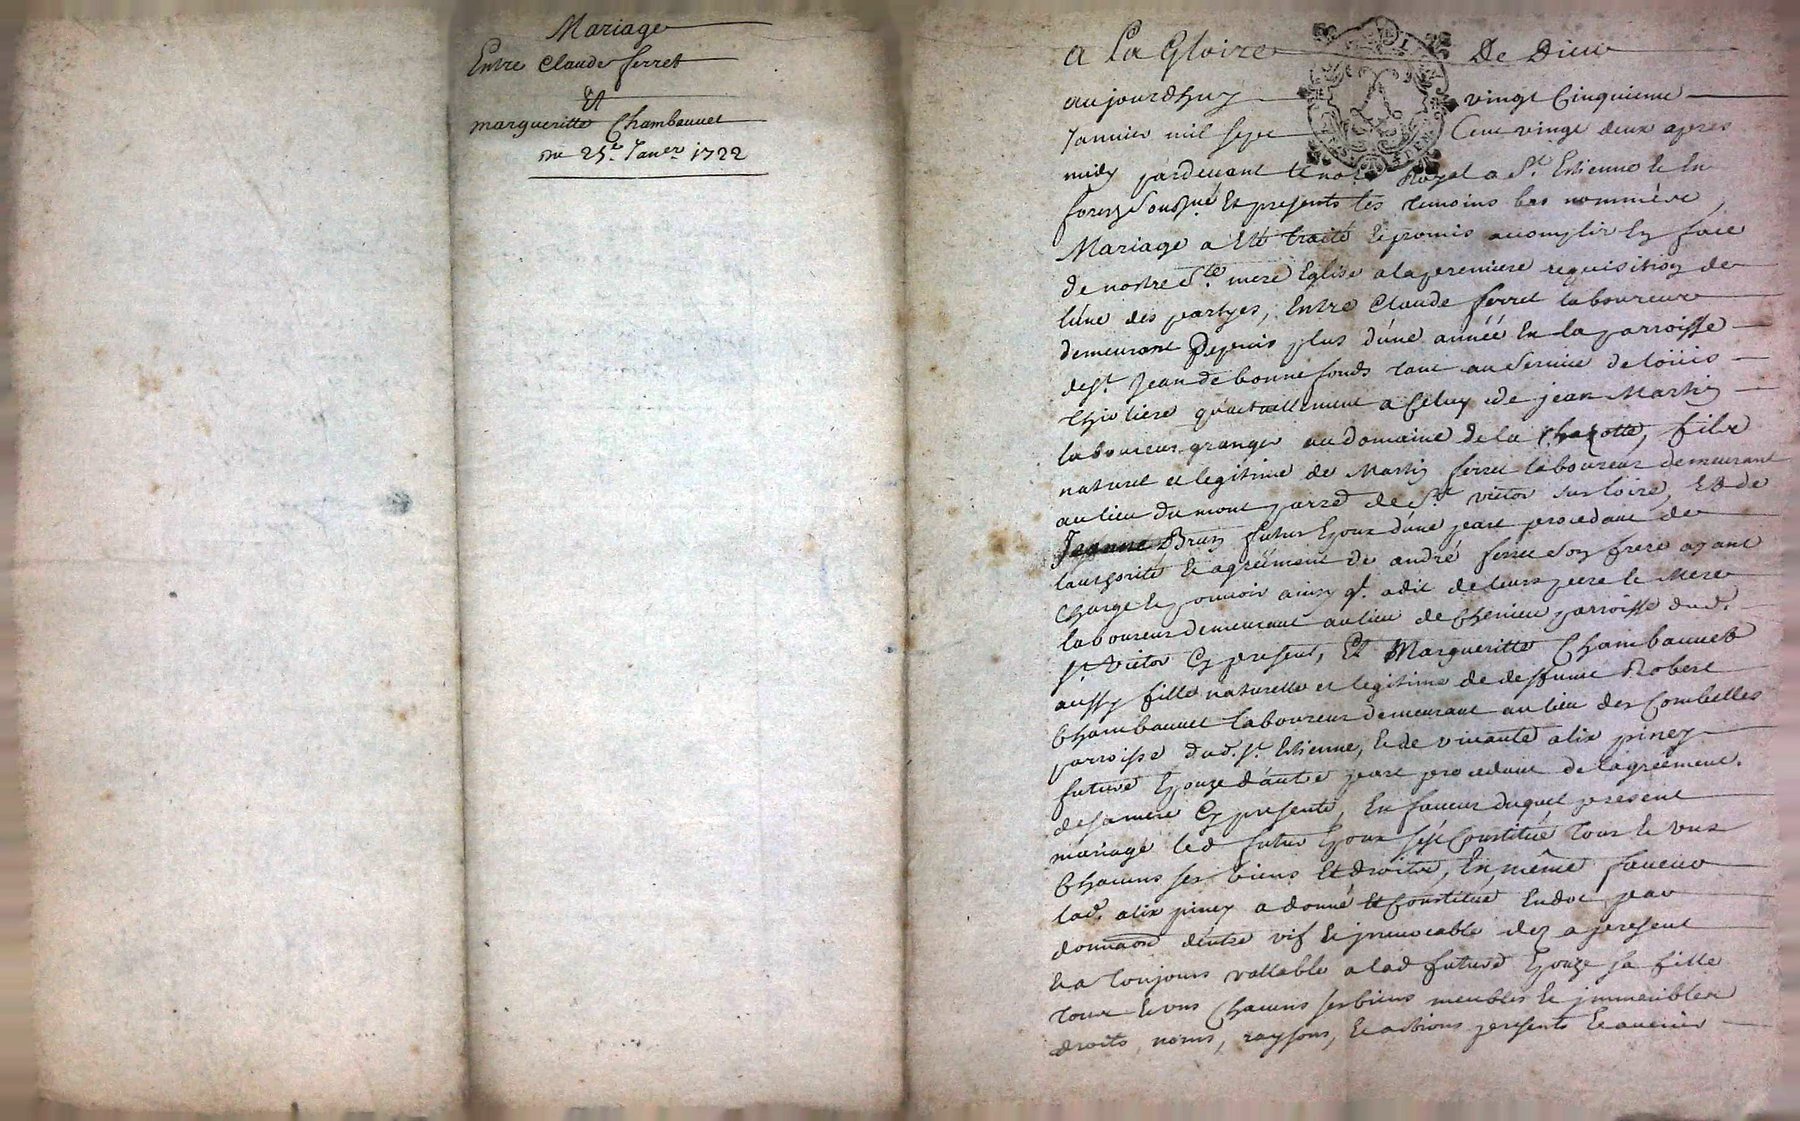 Mariage
Entre Claude ferret
Et
margueritte Chambauuet
Du 25e. Janer. 1722
a La Gloire De Dieu
aujourdhuy vingt Cinquieme
Januier mil sept Cent vingt deux apres
midy pardeuant le no.re Royal a St. Estienne le En
forez Sousné. Et presents les temoins bas nommées,
Mariage a Eté traité et promis accomplir En face
de nostre Ste. mere Eglise a la premiere requisition de
lúne des partyes, Entre Claude ferret laboureur
demeurant Depuis plus d'úne année En la parroisse
de St. Jean de bonnefonds tant au Seruice de loüis
thiolliere quactuellement a Celuy de jean Martin
laboureur granger au domaine de la Chazotte, fils
naturel et legitime de Martin ferret laboureur demeurant
au lieu du mont parred de St. victor sur loire, et de
Jeanne Brun futur Epoux dúne part procedant de
lauthorité et agréément de andré ferret son frere ayant
charge et pouuoir ainsy q.l a dit de leurs pere et Mere
laboureur demeurant au lieu de Chenieu parroisse dud.
St. Victor Cy present, Et Margueritte Chambauuet
aussy fille naturelle et legitime de deffunt Robert
Chambauuet laboureur demeurant au lieu des Combelles
parroisse dud. St. Estienne, et de viuante alix piney
future Epouze dautre part procedant de lagréément
de sa mere Cy presente, En faueur duquel present
mariage led futur Epoux sest Constitué tous et vns
Chacuns ses biens Et droits, En même faueur
lad. alix piney a donné et Constitué En dot par
donnaon dentre vif et jrreuocable dez a present
et a toujours vallable a lad future Epouze sa fille
tous et vns Chacuns ses biens meubles et jmmeubles
droits, noms, raysons, et actions presents et auenir